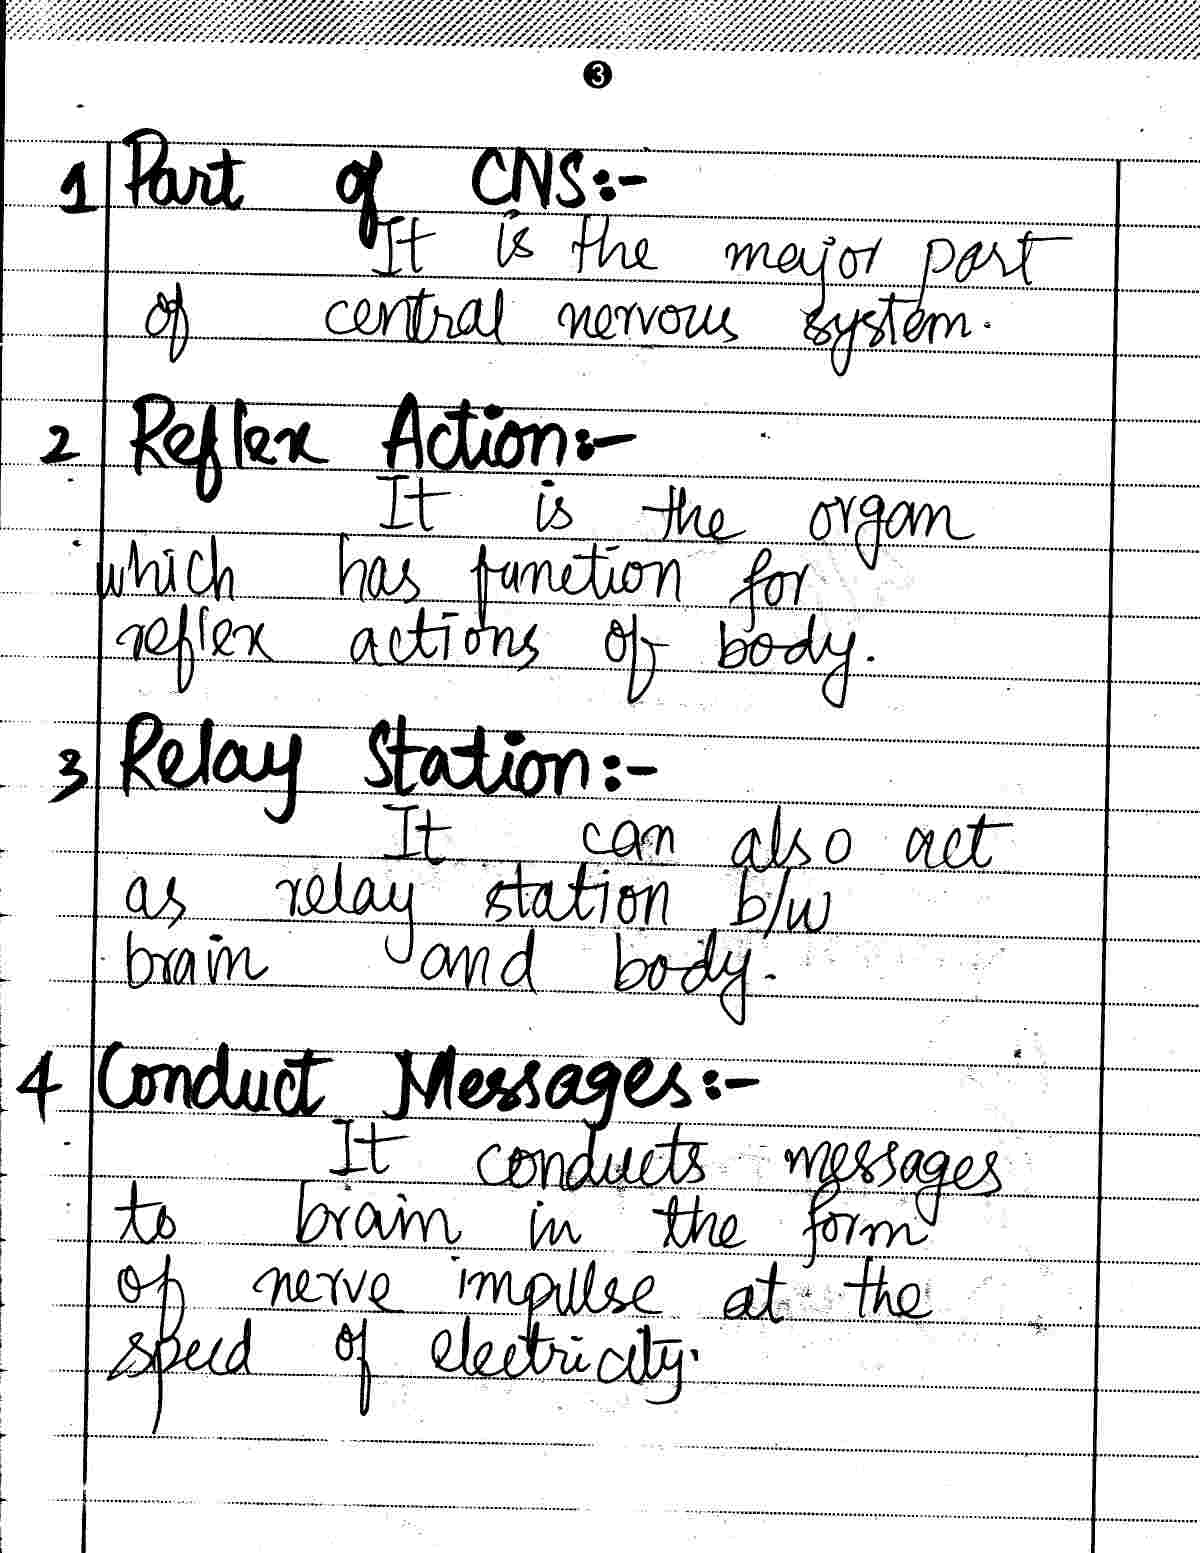 3
1 Part of CNS:-
It is the major part
of central nervous system.
2 Reflex Action:-
It is the organ
which has function for
reflex actions of body.
3 Relay Station:-
It can also act
as relay station b/w
brain and body.
4 Conduct Messages:-
It conducts messages
to brain in the form
of nerve impulse at the
speed of electricity.